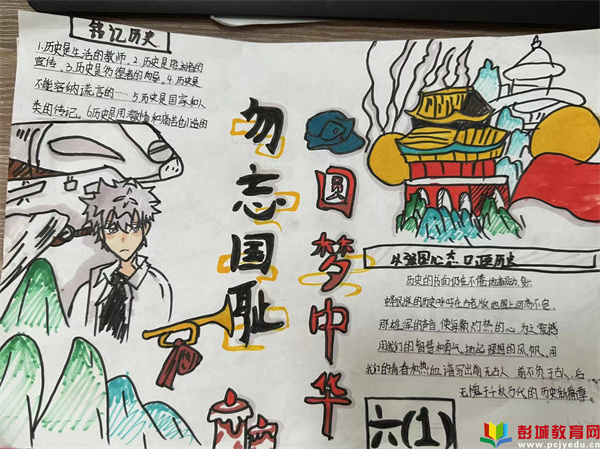 铭记历史
1.历史是生活的教师、2.历史是胜利者的
宣传、3.历史是彷徨者的向导、4.历史是
不能容纳谎言的……5.历史是国家和人
类的传记。6.历史是用激情和痛苦创造的
勿忘国耻
圆梦中华
从强国心态口正历史
历史的书向仍在不倦地翻动
的历史
那雄深的声音，使每颗灼热的心为之震撼
用我们的智慧和勇气扬起理想的风帆、用
我们的青春和热血谱写出前无古人
无愧于千秋万代的历史新篇章
六(1)
彭城教育网
www.pcjyedu.cn